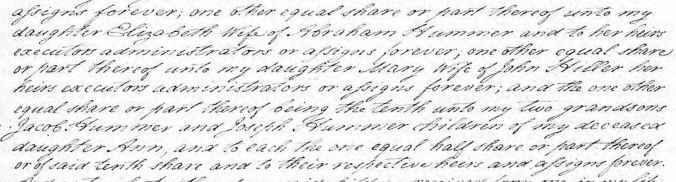 assigns forever; one other equal share or part thereof unto my
daughter Elizabeth Wife of Abraham Hummer and to her heirs
executors administrators or assigns forever, one other equal share
or part thereof unto my daughter Mary Wife of John Hiller her
heirs executors administrators or assigns forever; and the one other
equal share or part thereof being the tenth unto my two grandsons
Jacob Hummer and Joseph Hummer children of my deceased
daughter Ann, and to each the one equal half share or part thereof
or of said tenth share and to their respective heirs and assigns forever.